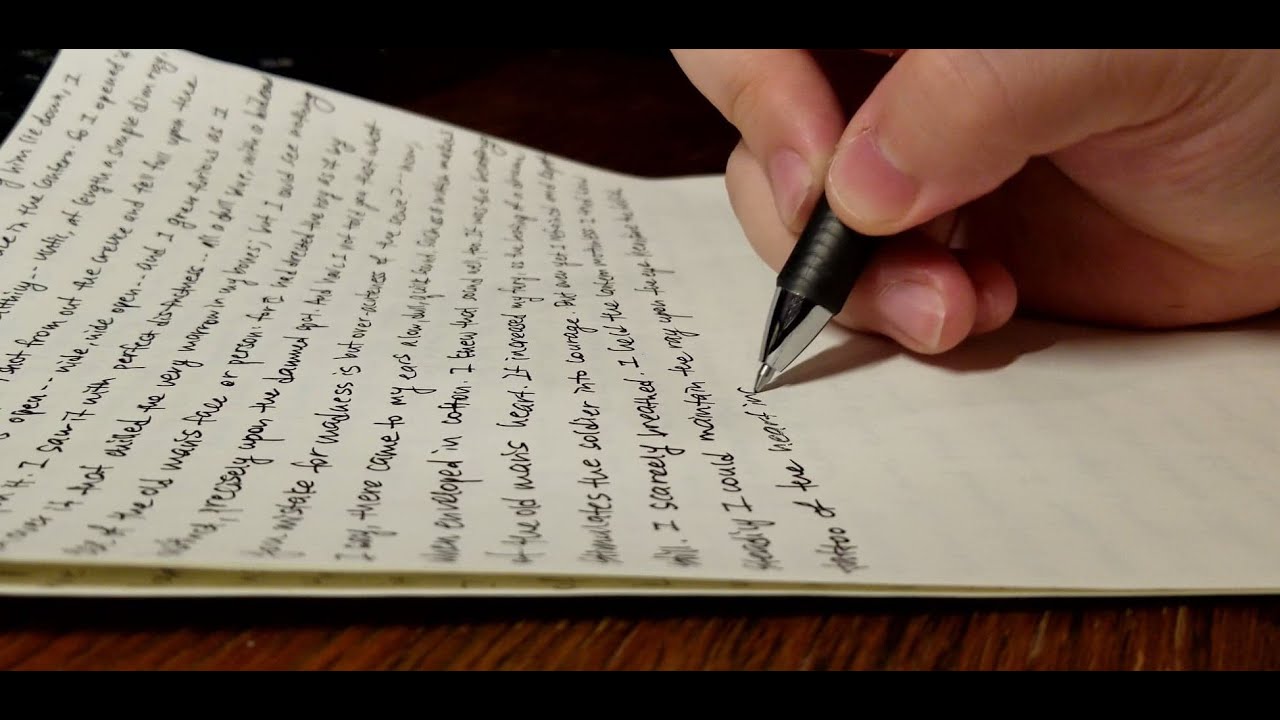 him lie down, I
in the lantern. So I opened it
until, at length a simple dim ray,
shot from out the crevice and fell full upon the
open -- wide, wide open -- and I grew furious as I
it. I saw it with perfect distinctness -- all a dull blue, with a hideous
over it that chilled the very marrow in my bones; but I could see nothing
of the old man's face or person: for I had directed the ray as if by
precisely upon the damned spot. And have I not told you that what
you mistake for madness is but over-acuteness of the sense? -- now,
I say, there came to my ears a low, dull, quick sound, such as a watch makes
when enveloped in cotton. I knew that sound well, too. It was the beating
of the old man's heart. It increased my fury, as the beating of a drum
stimulates the soldier into courage. But even yet I refrained and kept
still. I scarcely breathed. I held the lantern motionless. I tried how
steadily I could maintain the ray upon the eye. the hellish
tattoo of the heart inc